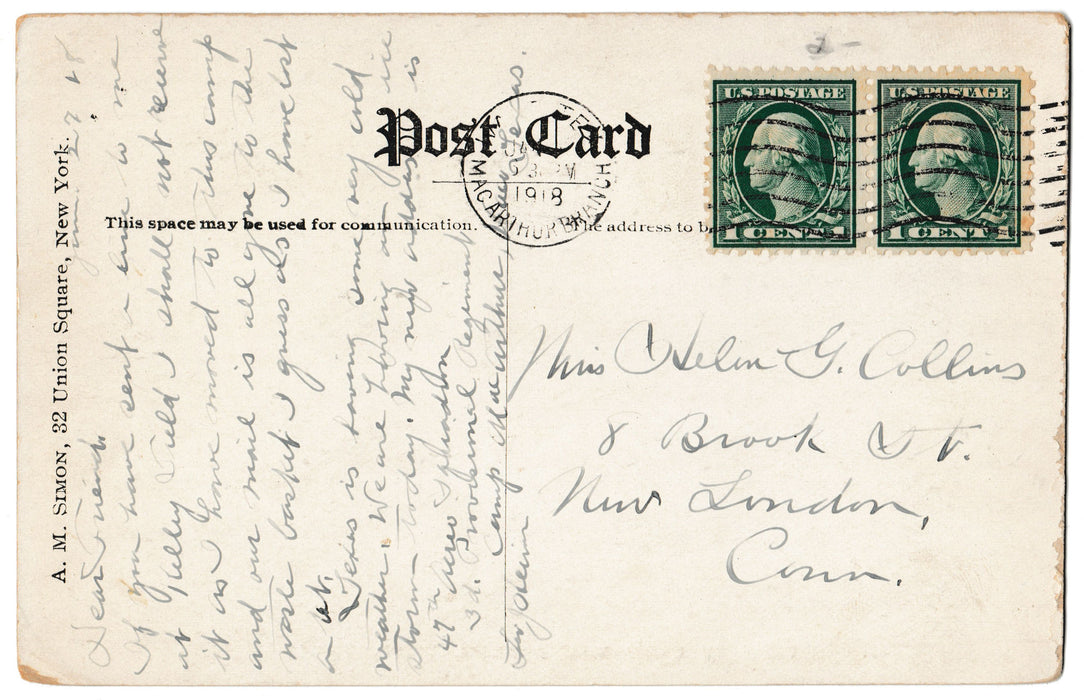 A. M. SIMON, 32 Union Square, New York.
Post Card
This space may be used for communication.
The address to b
U.S. POSTAGE
1 CENT 1
U.S. POSTAGE
1 CENT 1
MACARTHUR BRANCH
1918
2-
Miss Helen G. Collins
8 Brook St.
New London,
Conn.
Jan 27 18
Dear Friend,
If you have sent a line to me
at Kelley Field I shall not receive
it as I have moved to this camp
and our mail is all gone to the
waste basket I guess as I have lost
it.
Texas is having some very cold
weather. We are having an ice
storm today. My new address is
47th Aero Squadron
3d. Provisional Regiment
Camp MacArthur,
Waco Texas.